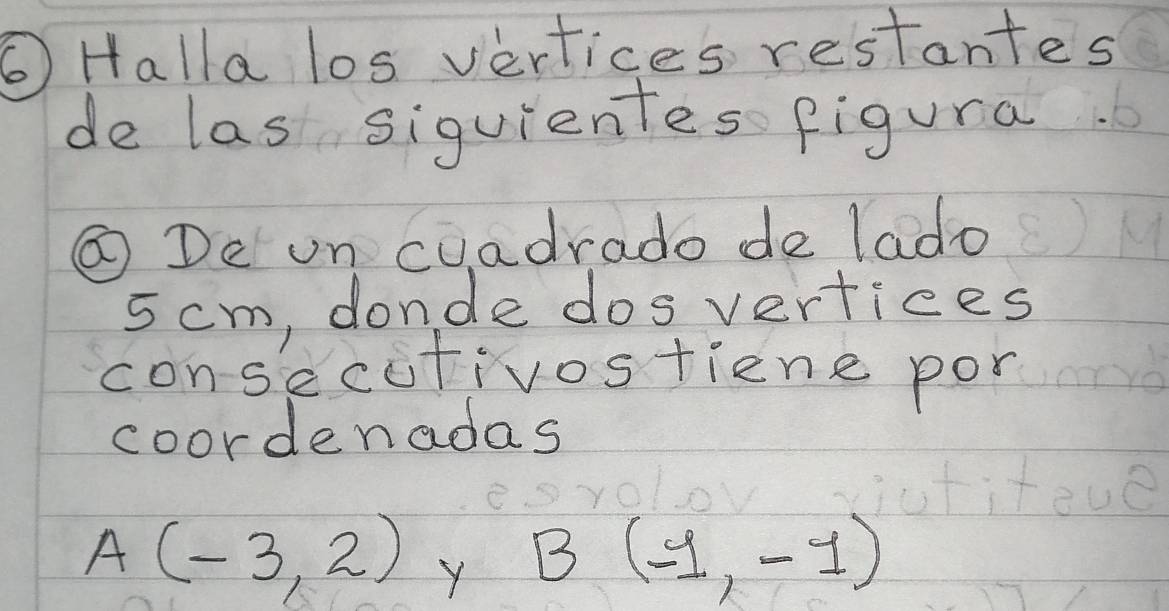 ⑥ Halla los vértices restantes
de las siguientes figura.
ⓐ De un cuadrado de lado
5cm, donde dos vertices
consecutivos tiene por
coordenadas
A (-3, 2) y B (-1, -1)